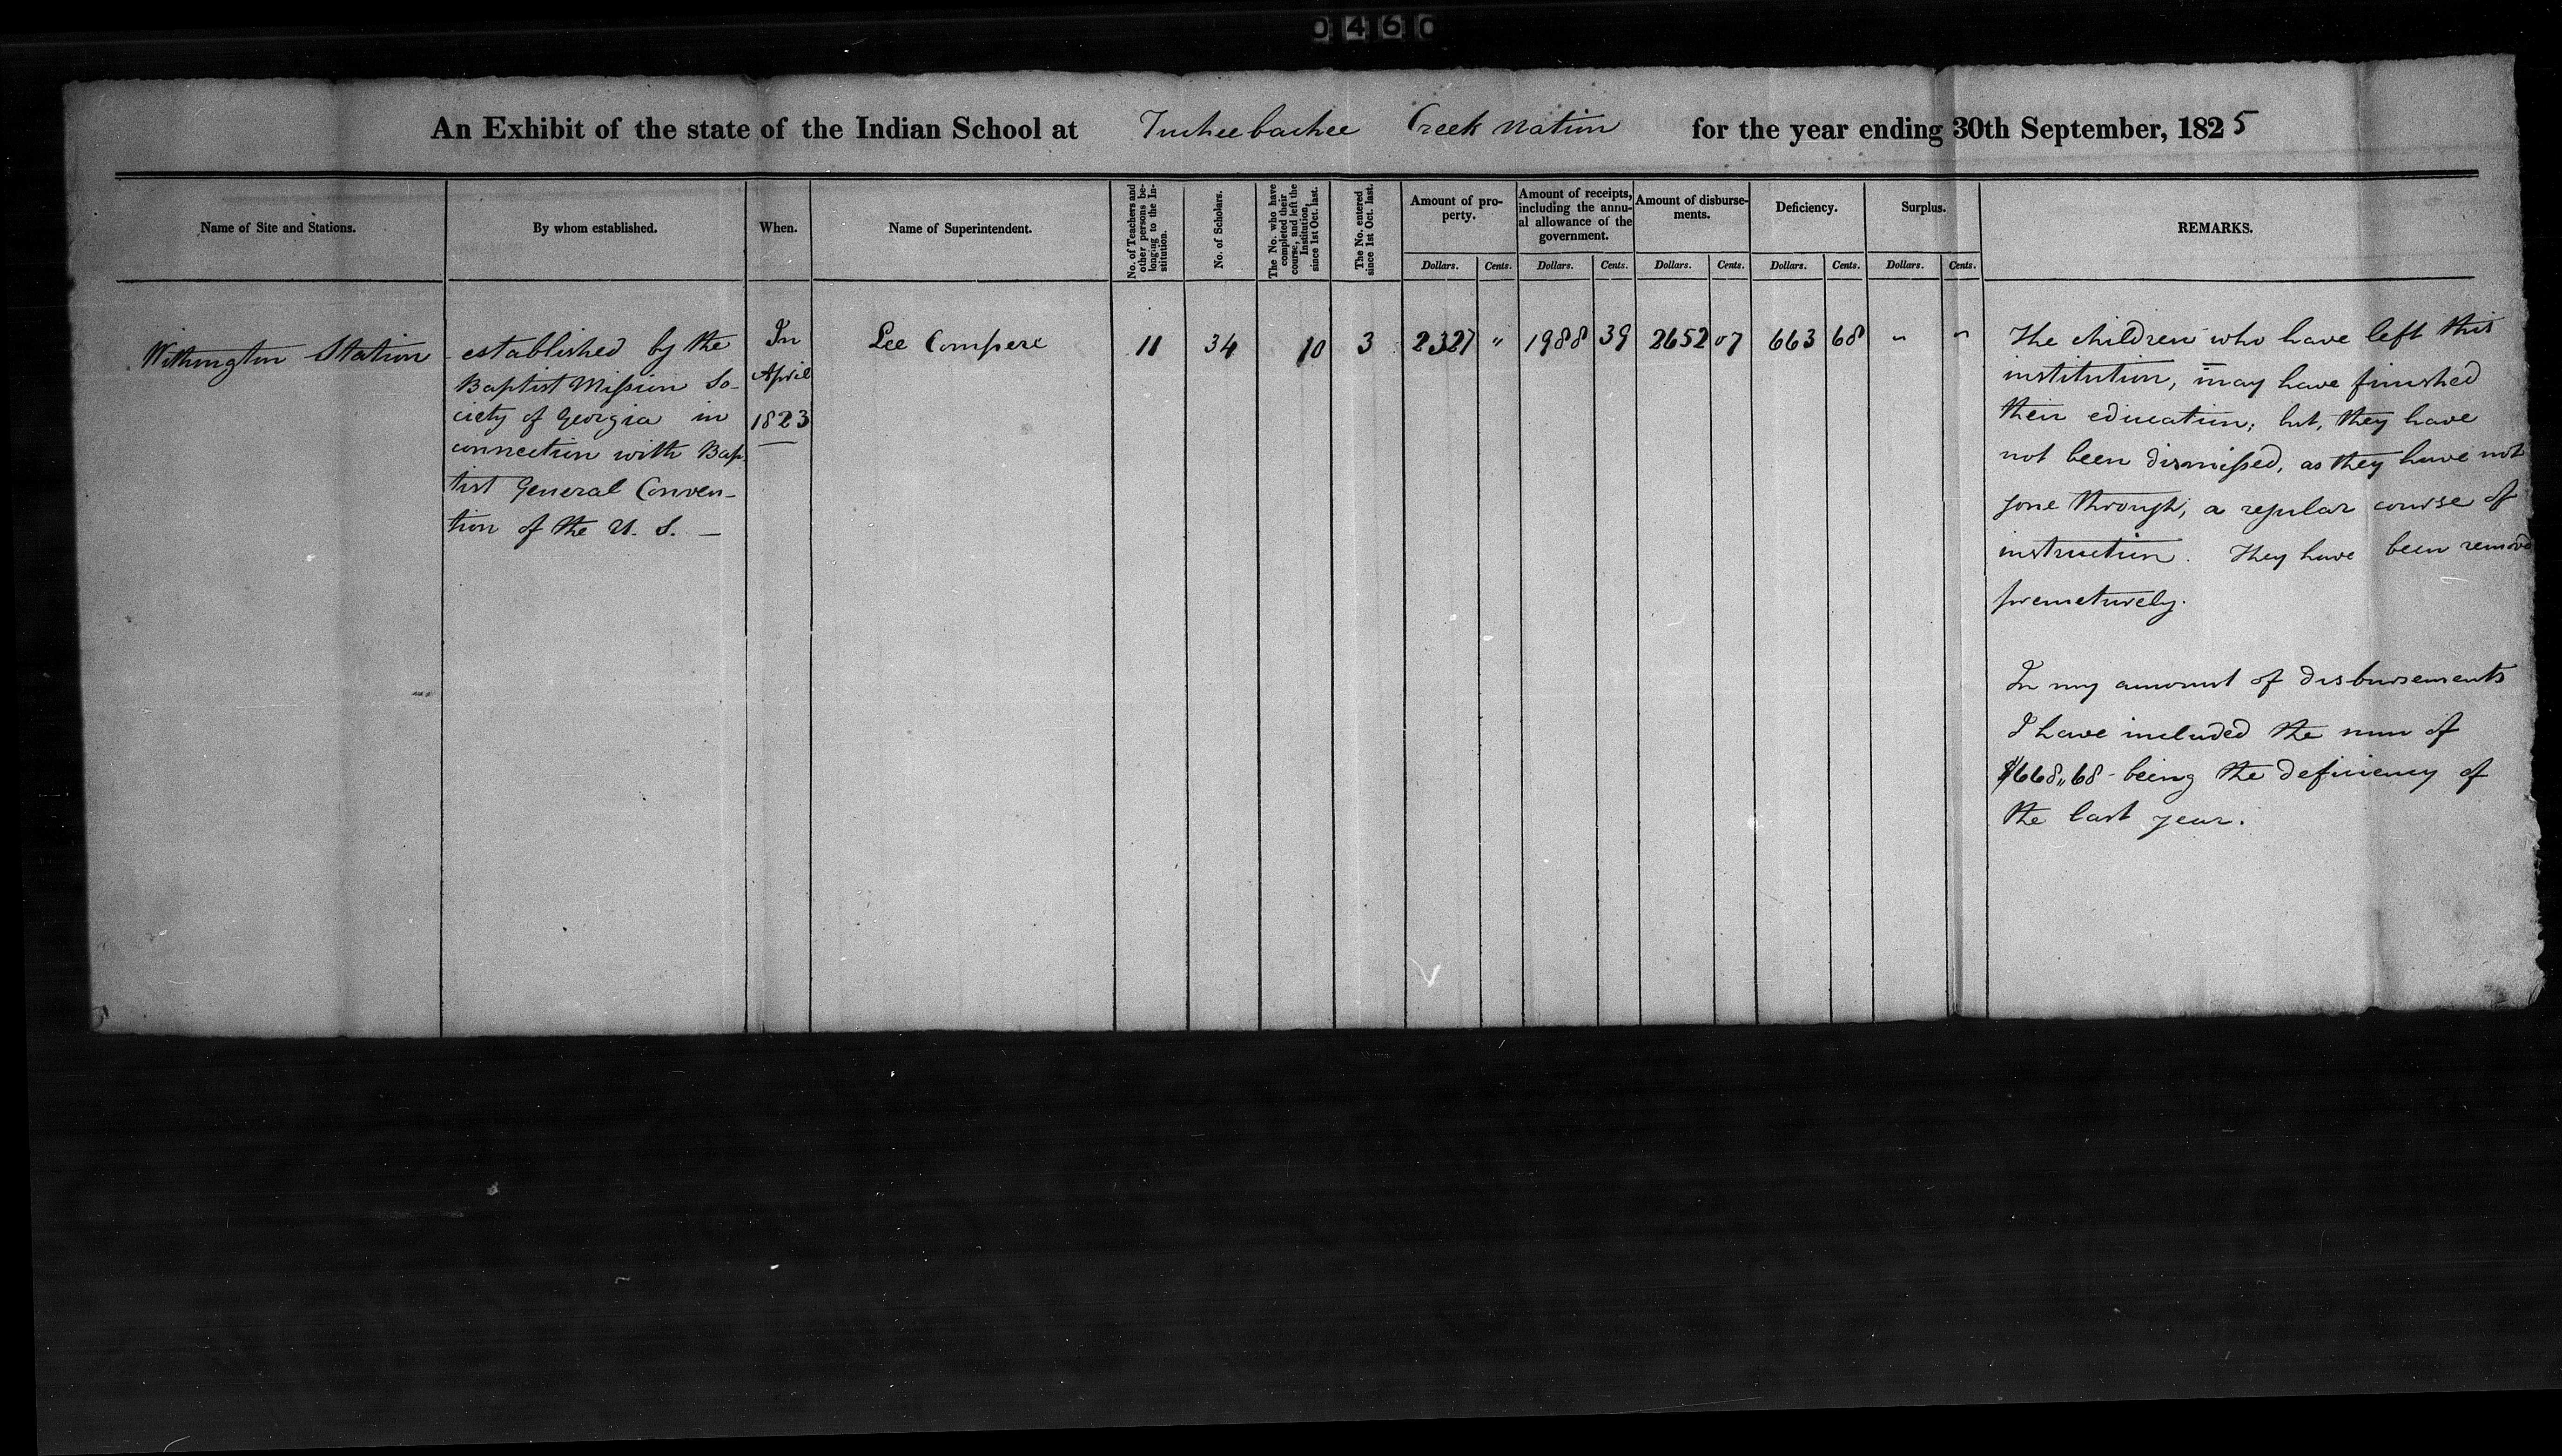 0460
An Exhibit of the state of the Indian School at Tuckeebachee Creek Nation for the year ending 30th September, 1825
Name of Site and Stations.
By whom established.
When.
Name of Superintendent.
No. of Teachers and
other persons be-
longing to the In-
stitution.
No. of Scholars.
The No. who have
completed their
course, and left the
Institution,
since 1st Oct. last.
The No. entered
since 1st Oct. last.
Amount of pro-
perty.
Amount of receipts,
including the annu-
al allowance of the
government.
Amount of disburse-
ments.
Deficiency.
Surplus.
REMARKS.
Dollars. Cents. Dollars. Cents. Dollars. Cents. Dollars. Cents. Dollars. Cents.
Withington Station
established by the
Baptist Mission So-
ciety of Georgia in
connection with Bap
tist General Conven-
tion of the U. S. —
In
April
1823
Lee Compere
11 34 10 3 2327 " 1988 39 2652 07 663 68 " "
The children who have left this
institution, may have finished
their education; but, they have
not been dismissed, as they have not
gone through, a regular course of
instruction. They have been removed
premeturely.
In my amount of disbursements
I have included the sum of
$668,,68 - being the deficiency of
the last year.